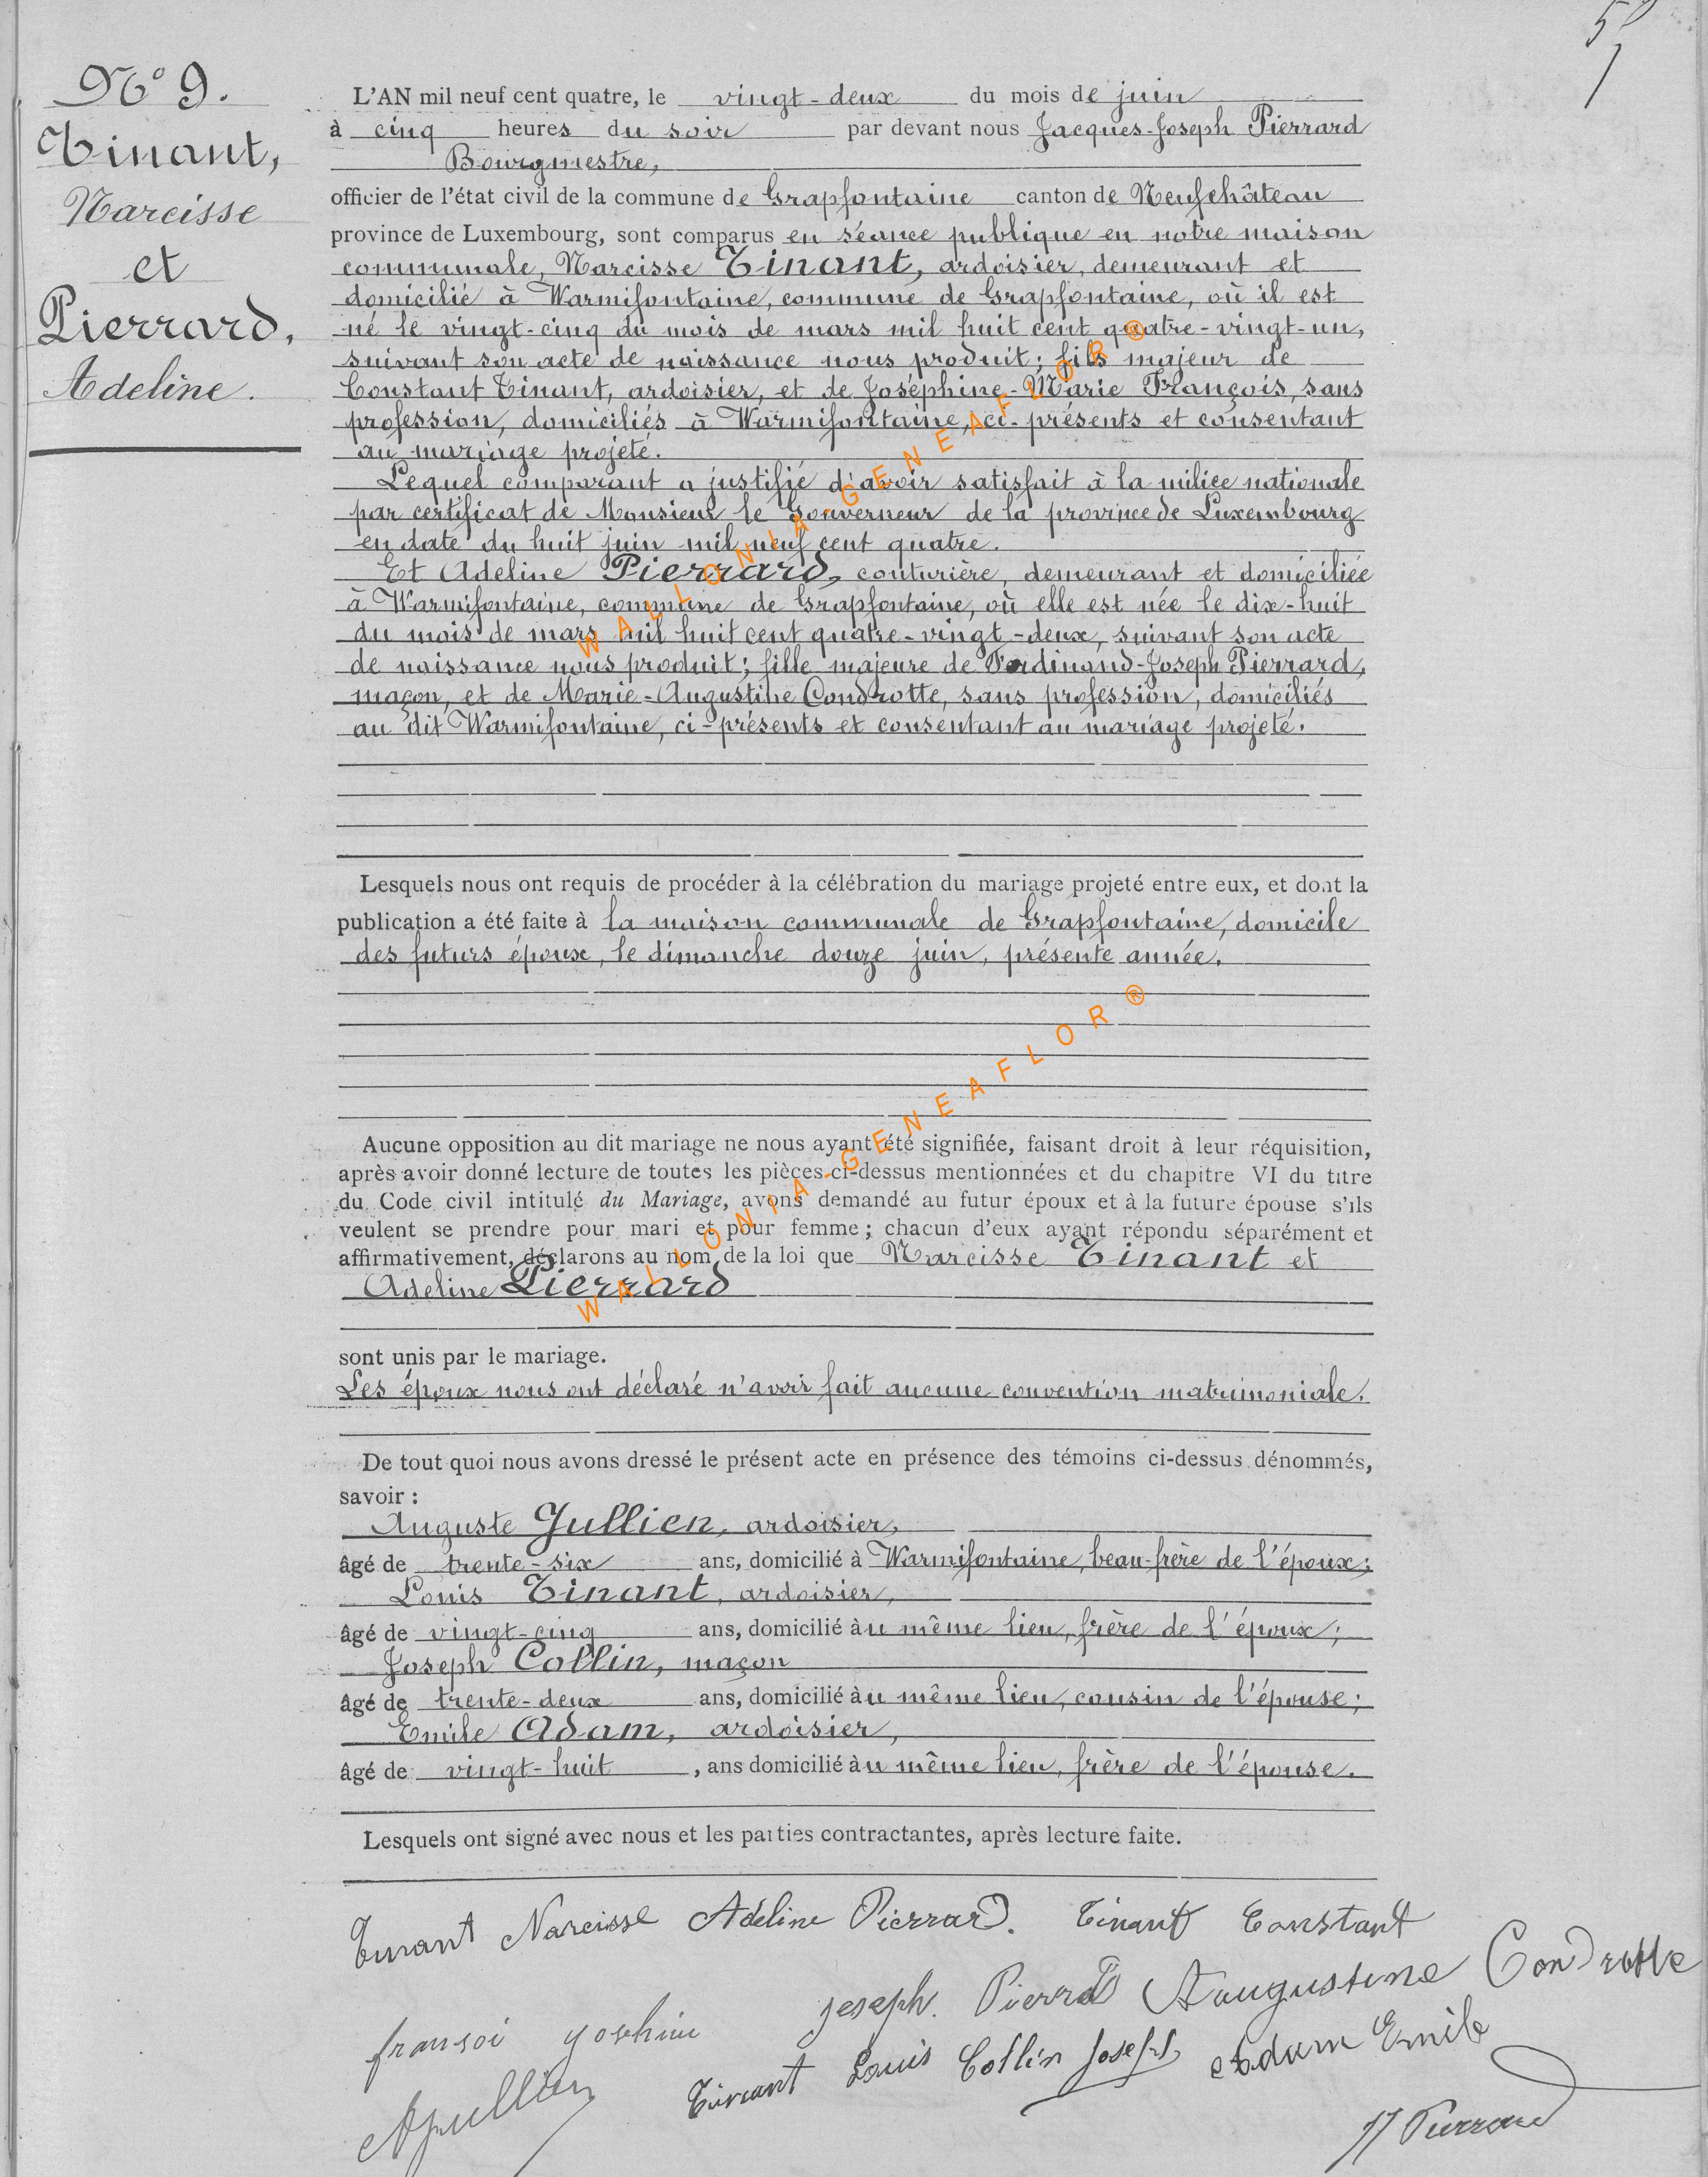 No 9.
Tinant,
Narcisse
et
Pierrard,
Adeline.
L'AN mil neuf cent quatre, le vingt-deux du mois de juin
à cinq heures du soir par devant nous Jacques-Joseph Pierrard
Bourgmestre,
officier de l'état civil de la commune de Grapfontaine canton de Neufchâteau
province de Luxembourg, sont comparus en séance publique en notre maison
communale, Narcisse Tinant, ardoisier, demeurant et
domicilié à Warmifontaine, commune de Grapfontaine, où il est
né le vingt-cinq du mois de mars mil huit cent quatre-vingt-un,
suivant son acte de naissance nous produit; fils majeur de
Constant Tinant, ardoisier, et de Joséphine-Marie François, sans
profession, domiciliés à Warmifontaine, ci-présents et consentant
au mariage projeté.
Lequel comparant a justifié d'avoir satisfait à la milice nationale
par certificat de Monsieur le Gouverneur de la province de Luxembourg
en date du huit juin mil neuf cent quatre.
Et Adeline Pierrard, couturière, demeurant et domiciliée
à Warmifontaine, commune de Grapfontaine, où elle est née le dix-huit
du mois de mars mil huit cent quatre-vingt-deux, suivant son acte
de naissance nous produit; fille majeure de Ferdinand-Joseph Pierrard,
maçon, et de Marie-Augustine Condrotte, sans profession, domiciliés
au dit Warmifontaine, ci-présents et consentant au mariage projeté.
Lesquels nous ont requis de procéder à la célébration du mariage projeté entre eux, et dont la
publication a été faite à la maison communale de Grapfontaine, domicile
des futurs époux, le dimanche douze juin, présente année.
Aucune opposition au dit mariage ne nous ayant été signifiée, faisant droit à leur réquisition,
après avoir donné lecture de toutes les pièces ci-dessus mentionnées et du chapitre VI du titre
du Code civil intitulé du Mariage, avons demandé au futur époux et à la future épouse s'ils
veulent se prendre pour mari et pour femme; chacun d'eux ayant répondu séparément et
affirmativement, déclarons au nom de la loi que Narcisse Tinant et
Adeline Pierrard
sont unis par le mariage.
Les époux nous ont déclaré n'avoir fait aucune convention matrimoniale.
De tout quoi nous avons dressé le présent acte en présence des témoins ci-dessus dénommés,
savoir :
Auguste Jullien, ardoisier,
âgé de trente-six ans, domicilié à Warmifontaine, beau-frère de l'époux;
Louis Tinant, ardoisier,
âgé de vingt-cinq ans, domicilié àu même lieu, frère de l'époux;
Joseph Collin, maçon
âgé de trente-deux ans, domicilié àu même lieu, cousin de l'épouse;
Emile Adam, ardoisier,
âgé de vingt-huit, ans domicilié àu même lieu, frère de l'épouse.
Lesquels ont signé avec nous et les parties contractantes, après lecture faite.
Tinant Narcisse Adeline Pierrard. Tinant Constant
Joseph. Pierrard Augustine Condrotte
fransoi yosehine
AJullien Tinant Louis Collin Joseph Adam Emile
JJ Pierrard
WALLONIA-GENEAFLOR®
WALLONIA-GENEAFLOR®